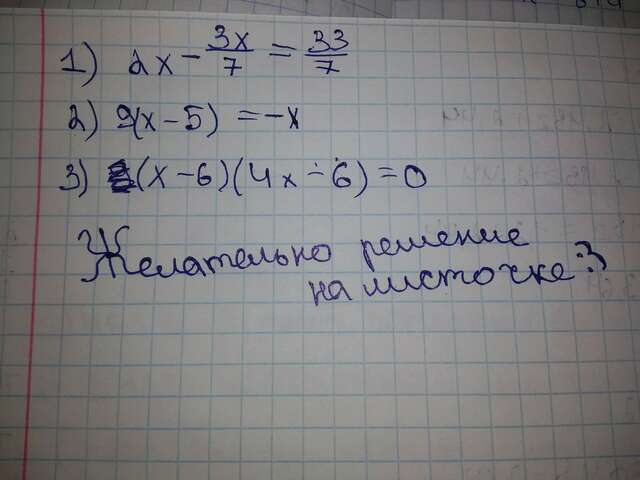 1) 2x - 3x/7 = 33/7
2) 9(x-5) = -x
3) (x-6)(4x-6)=0
Желательно решение
на листочке :3